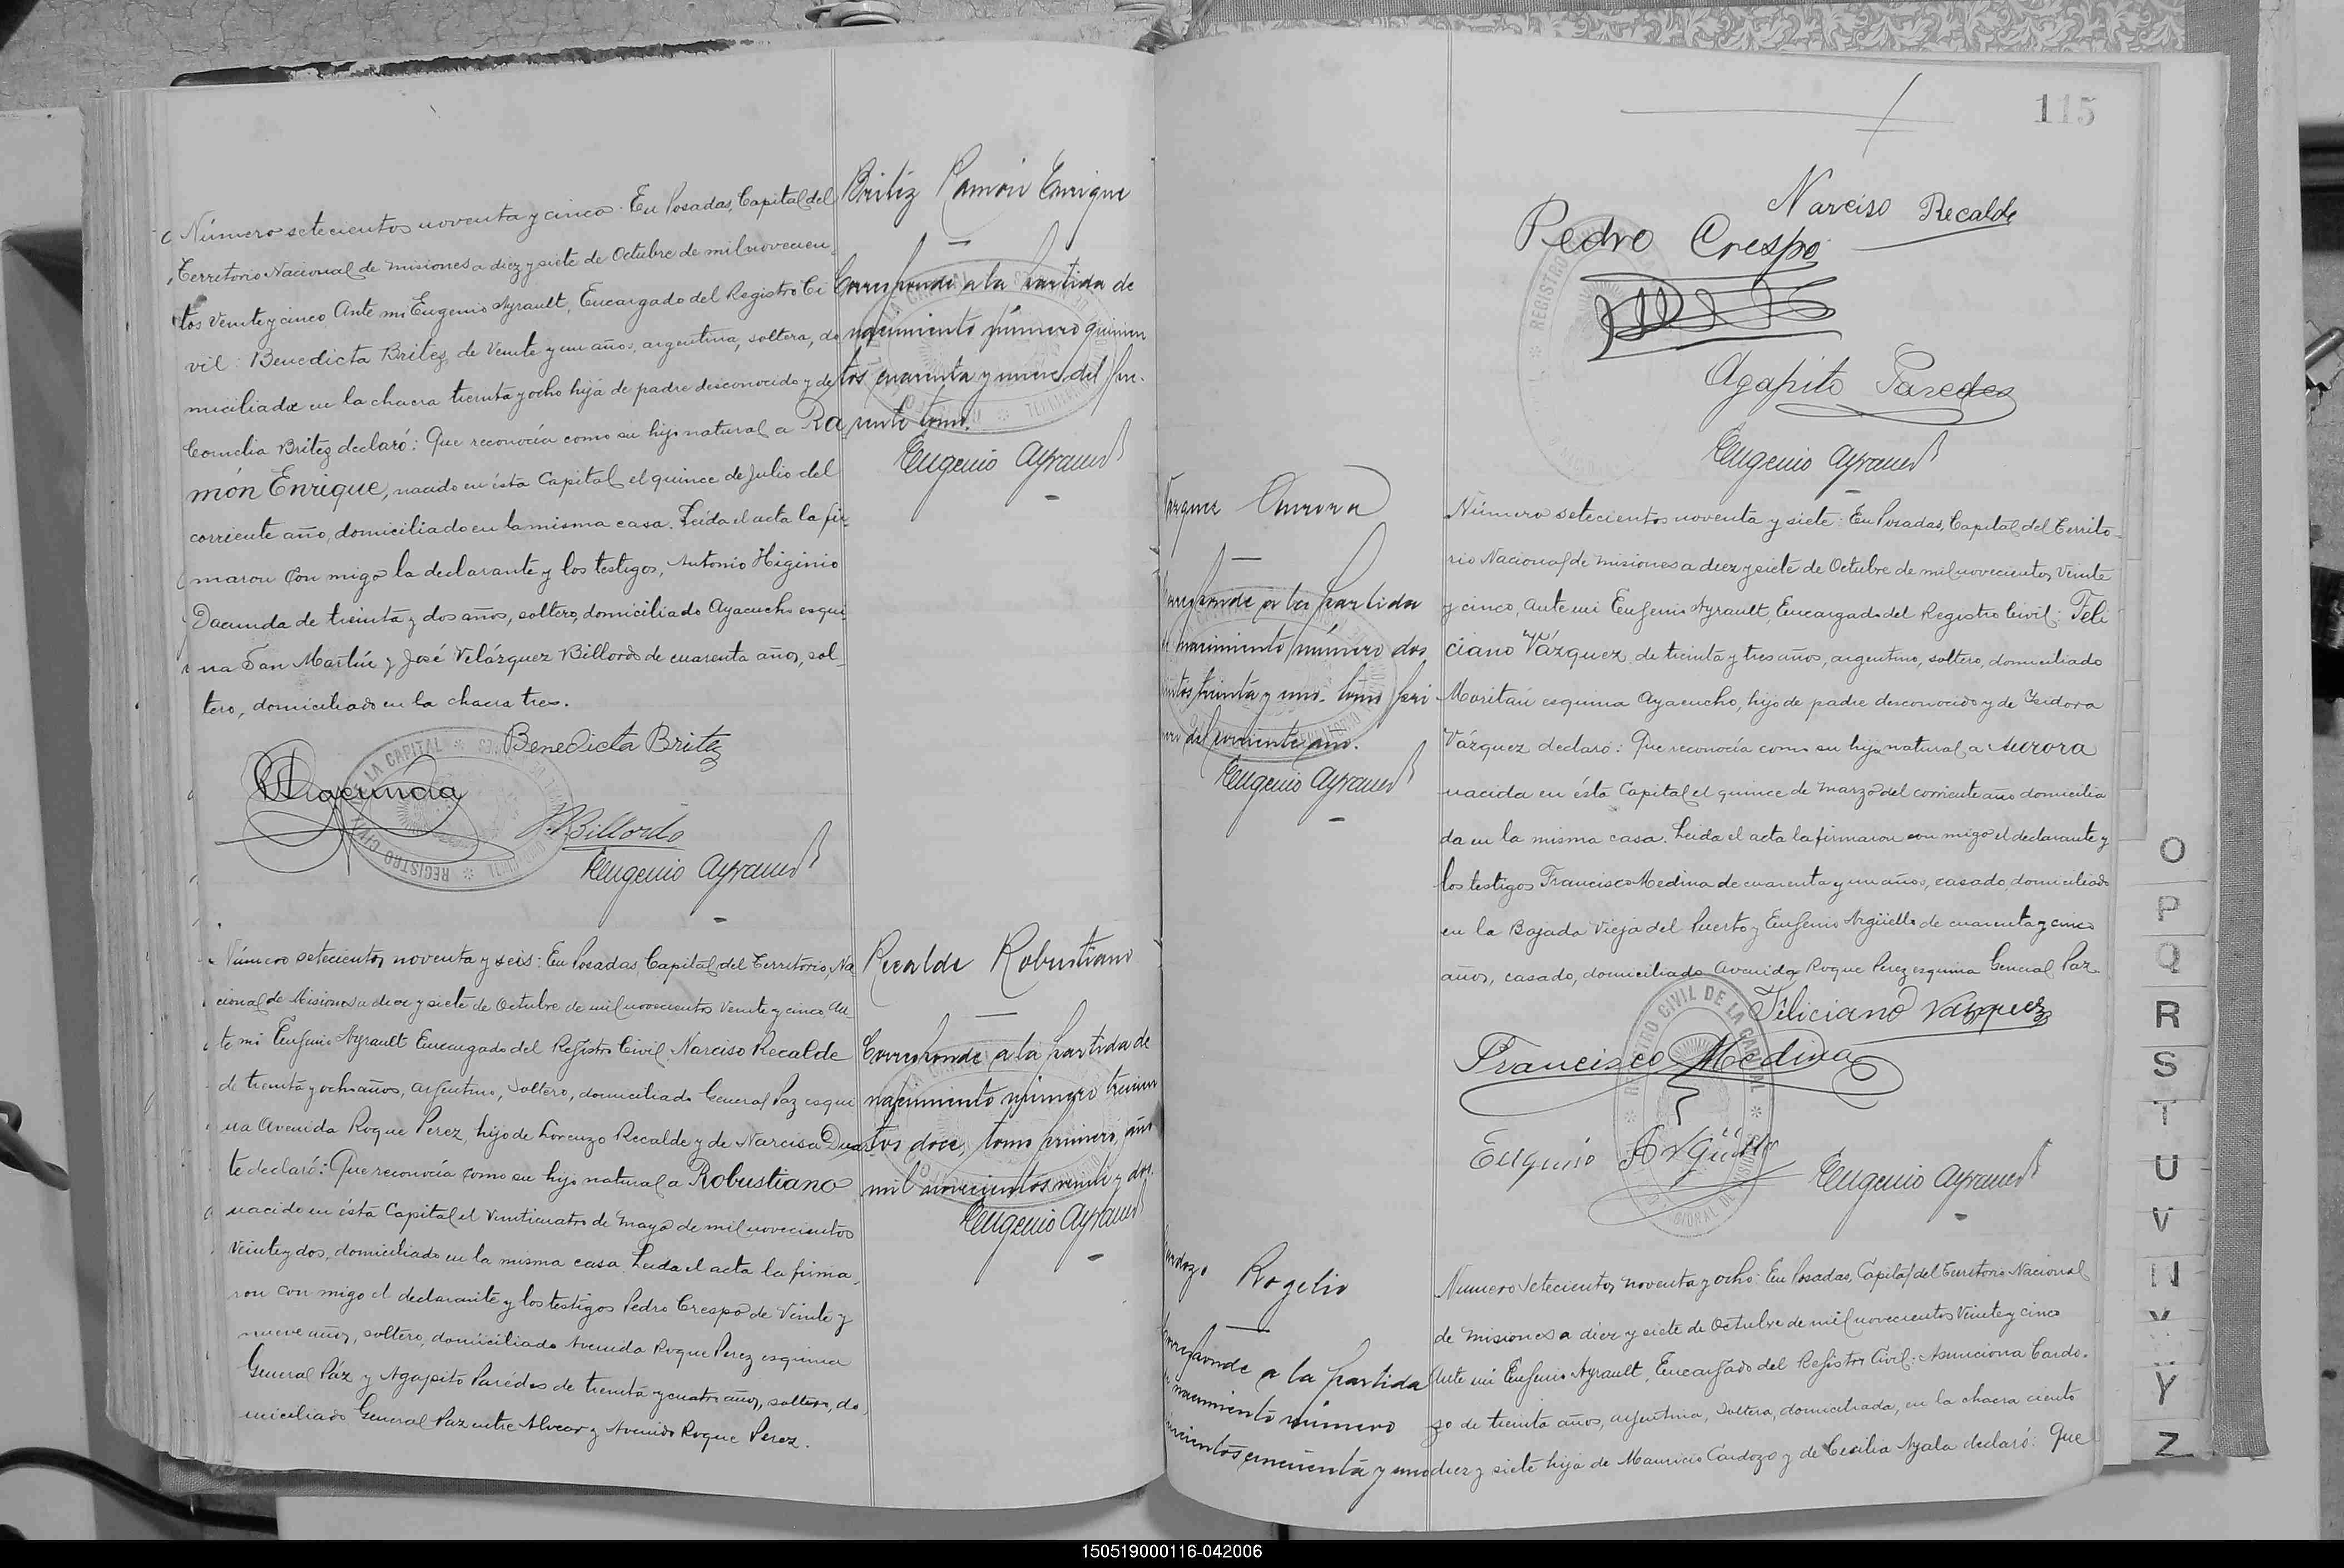 Número setecientos noventa y cinco. En Posadas, Capital del
Territorio Nacional de Misiones a diez y siete de Octubre de mil novecien
tos veinte y cinco. Ante mi Eugenio Ayrault, Encargado del Registro Ci
vil: Benedicta Britez, de veinte y un años, argentina, soltera, do
miciliada en la chacra treinta y ocho hija de padre desconocido y de
Cornelia Britez declaró: Que reconocía como su hijo natural a Ra
món Enrique, nacido en ésta Capital el quince de Julio del
corriente año, domiciliado en la misma casa. Leída el acta la fir
maron con migo la declarante y los testigos, Antonio Higinio
Dacunda de treinta y dos años, soltero, domiciliado Ayacucho esqui
na San Martín y José Velázquez Billordo de cuarenta años, sol
tero, domiciliado en la chacra tres.
Benedicta Britez
Dacunda
Billordo
Eugenio Ayrault
Britéz Ramón Enrique
Corresponde a la partida de
nacimiento número quinien
tos cuarenta y nueve del pre-
sente tomo.
Eugenio Ayrault
REGISTRO CIVIL LA CAPITAL
Número setecientos noventa y seis: En Posadas, Capital del Territorio, Na
cional de Misiones a diez y siete de Octubre de mil novecientos veinte y cinco. An
te mi Eugenio Ayrault Encargado del Registro Civil, Narciso Recalde
de treinta y ocho años, argentino, soltero, domiciliado General Paz esqui
na Avenida Roque Perez, hijo de Lorenzo Recalde y de Narcisa Duar
te declaró: Que reconocía como su hijo natural a Robustiano
nacido en ésta Capital el veinticuatro de mayo de mil novecientos
veinte y dos, domiciliado en la misma casa. Leída el acta la firma
ron con migo el declarante y los testigos Pedro Crespo de veinte y
nueve años, soltero, domiciliado Avenida Roque Perez esquina
General Páz y Agapito Parédes de treinta y cuatro años, soltero, do
miciliado General Paz entre Alvear y Avenida Roque Perez.
Recalde Robustiano
Corresponde a la partida de
nacimiento número trecien
tos doce, tomo primero, año
mil novecientos veinte y dos.
Eugenio Ayrault
115
Narciso Recalde
Pedro Crespo
Agapito Paredes
Eugenio Ayrault
REGISTRO
Vazquez Aurora
Corresponde a la partida
de nacimiento número dos
cientos treinta y uno. tomo pri
mero del corriente año.
Eugenio Ayrault
Número setecientos noventa y siete: En Posadas, Capital del Territo
rio Nacional de Misiones a diez y siete de Octubre de mil novecientos veinte
y cinco, ante mi Eugenio Ayrault, Encargado del Registro Civil: Feli
ciano Vázquez, de treinta y tres años, argentino, soltero, domiciliado
Moritán esquina Ayacucho, hijo de padre desconocido y de Isidora
Vázquez declaró: Que reconocía como su hija natural a Aurora
nacida en ésta Capital el quince de Marzo del corriente año domicilia
da en la misma casa. Leída el acta la firmaron con migo el declarante y
los testigos Francisco Medina de cuarenta y un años, casado, domiciliado
en la Bajada Vieja del Puerto y Eugenio Argüello de cuarenta y cinco
años, casado, domiciliado Avenida Roque Perez esquina General Paz
Feliciano Vazquez
Francisco Medina
Eugenio Argüello
Eugenio Ayrault
REGISTRO CIVIL DE LA CAPITAL
Cardozo Rogelio
Corresponde a la partida
de nacimiento número
cincuenta y uno
Numero Setecientos noventa y ocho: En Posadas, Capital del Territorio Nacional
de Misiones a diez y siete de Octubre de mil novecientos veinte y cinco
Ante mi Eugenio Ayrault, Encargado del Registro Civil: Asunciona Cardo-
zo de treinta años, argentina, soltera, domiciliada, en la chacra ciento
diez y siete hija de Mauricio Cardozo y de Cecilia Ayala declaró: Que
O
P
Q
R
S
T
U
V
W
X
Y
Z
150519000116-042006